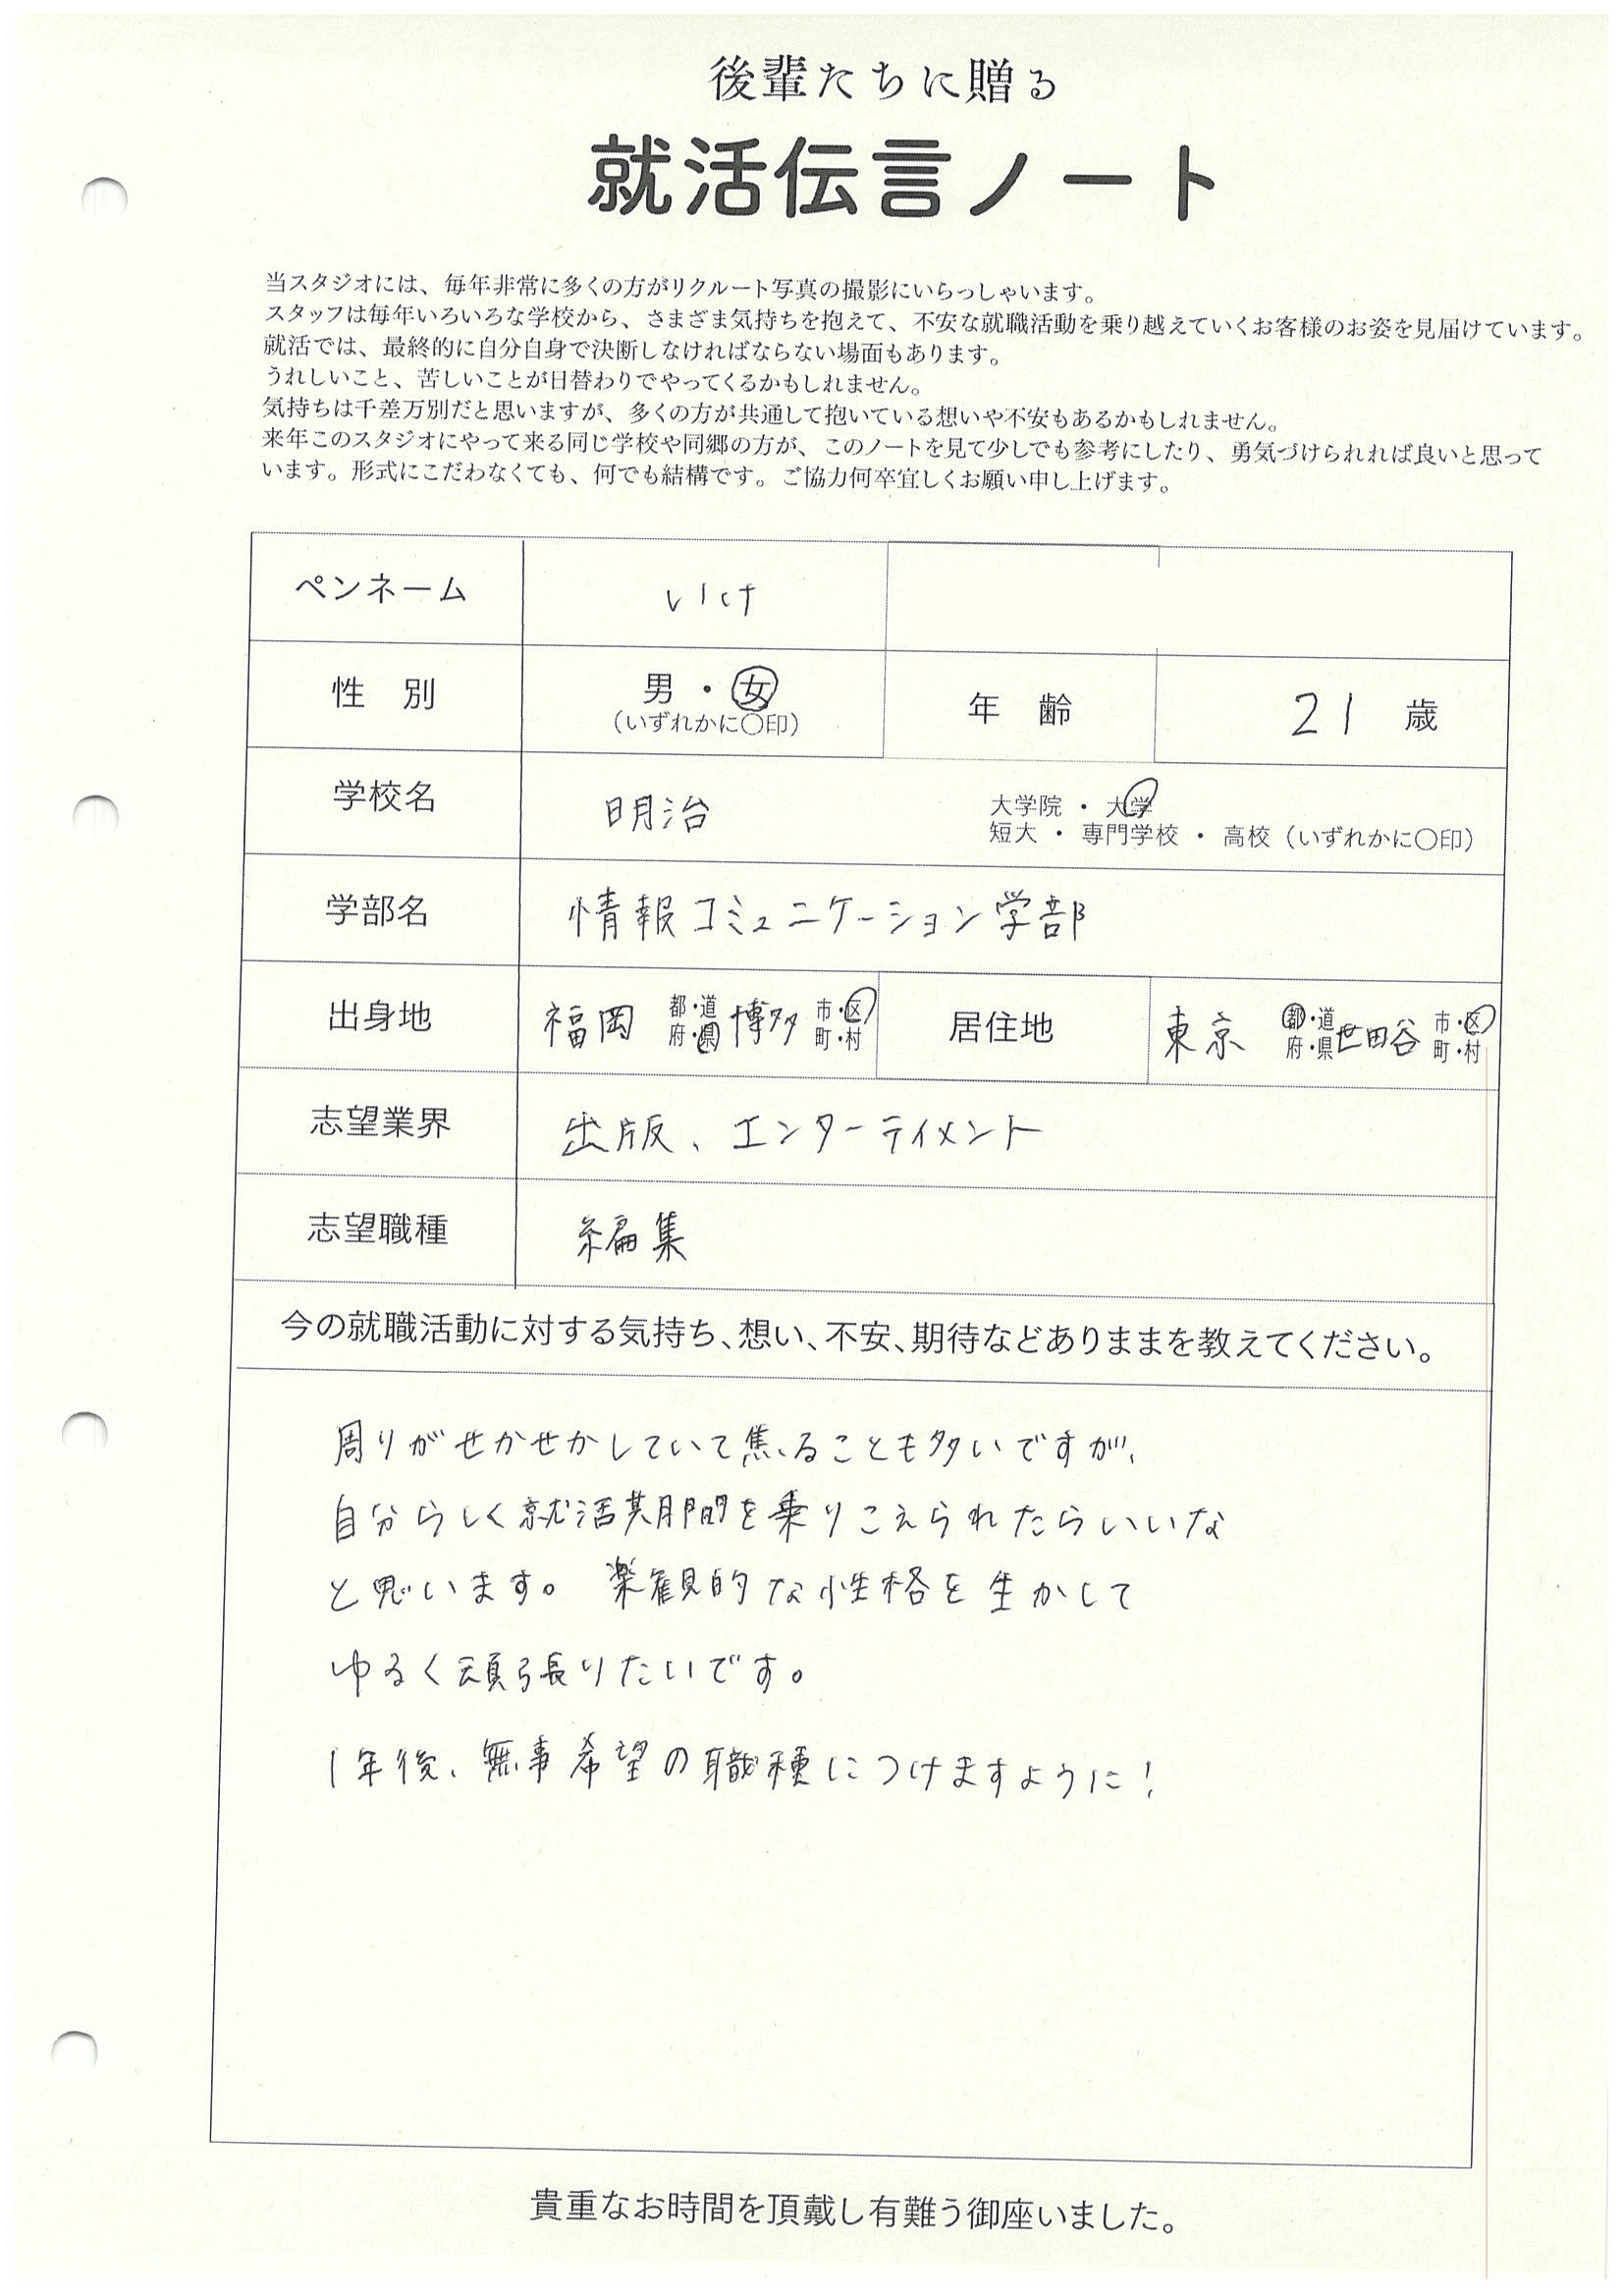 後輩たちに贈る
就活伝言ノート
当スタジオには、毎年非常に多くの方がリクルート写真の撮影にいらっしゃいます。
スタッフは毎年いろいろな学校から、さまざま気持ちを抱えて、不安な就職活動を乗り越えていくお客様のお姿を見届けています。
就活では、最終的に自分自身で決断しなければならない場面もあります。
うれしいこと、苦しいことが日替わりでやってくるかもしれません。
気持ちは千差万別だと思いますが、多くの方が共通して抱いている想いや不安もあるかもしれません。
来年このスタジオにやって来る同じ学校や同郷の方が、このノートを見て少しでも参考にしたり、勇気づけられれば良いと思って
います。形式にこだわなくても、何でも結構です。ご協力何卒宜しくお願い申し上げます。
ペンネーム いけ
性 別 男 ・ 女 年 齢 21 歳
(いずれかに〇印)
学校名 明治 大学院 ・ 大学
短大 ・ 専門学校 ・ 高校 (いずれかに〇印)
学部名 情報コミュニケーション学部
出身地 福岡 都・道 府・県 博多 市・区 町・村 居住地 東京 都・道 府・県 世田谷 市・区 町・村
志望業界 出版、エンターテイメント
志望職種 編集
今の就職活動に対する気持ち、想い、不安、期待などありままを教えてください。
周りがせかせかしていて焦ることも多いですが、
自分らしく就活期間を乗りこえられたらいいな
と思います。 楽観的な性格を生かして
ゆるく頑張りたいです。
1年後、無事希望の職種につけますように!
貴重なお時間を頂戴し有難う御座いました。